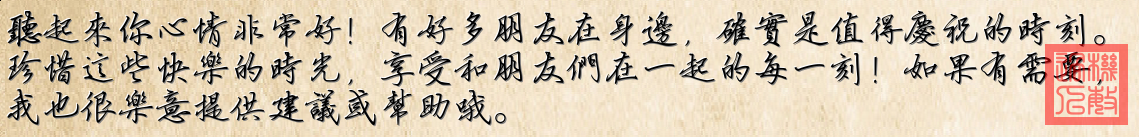 聽起來你心情非常好！有好多朋友在身邊，確實是值得慶祝的時刻。
珍惜這些快樂的時光，享受和朋友們在一起的每一刻！如果有需要，
我也很樂意提供建議或幫助哦。